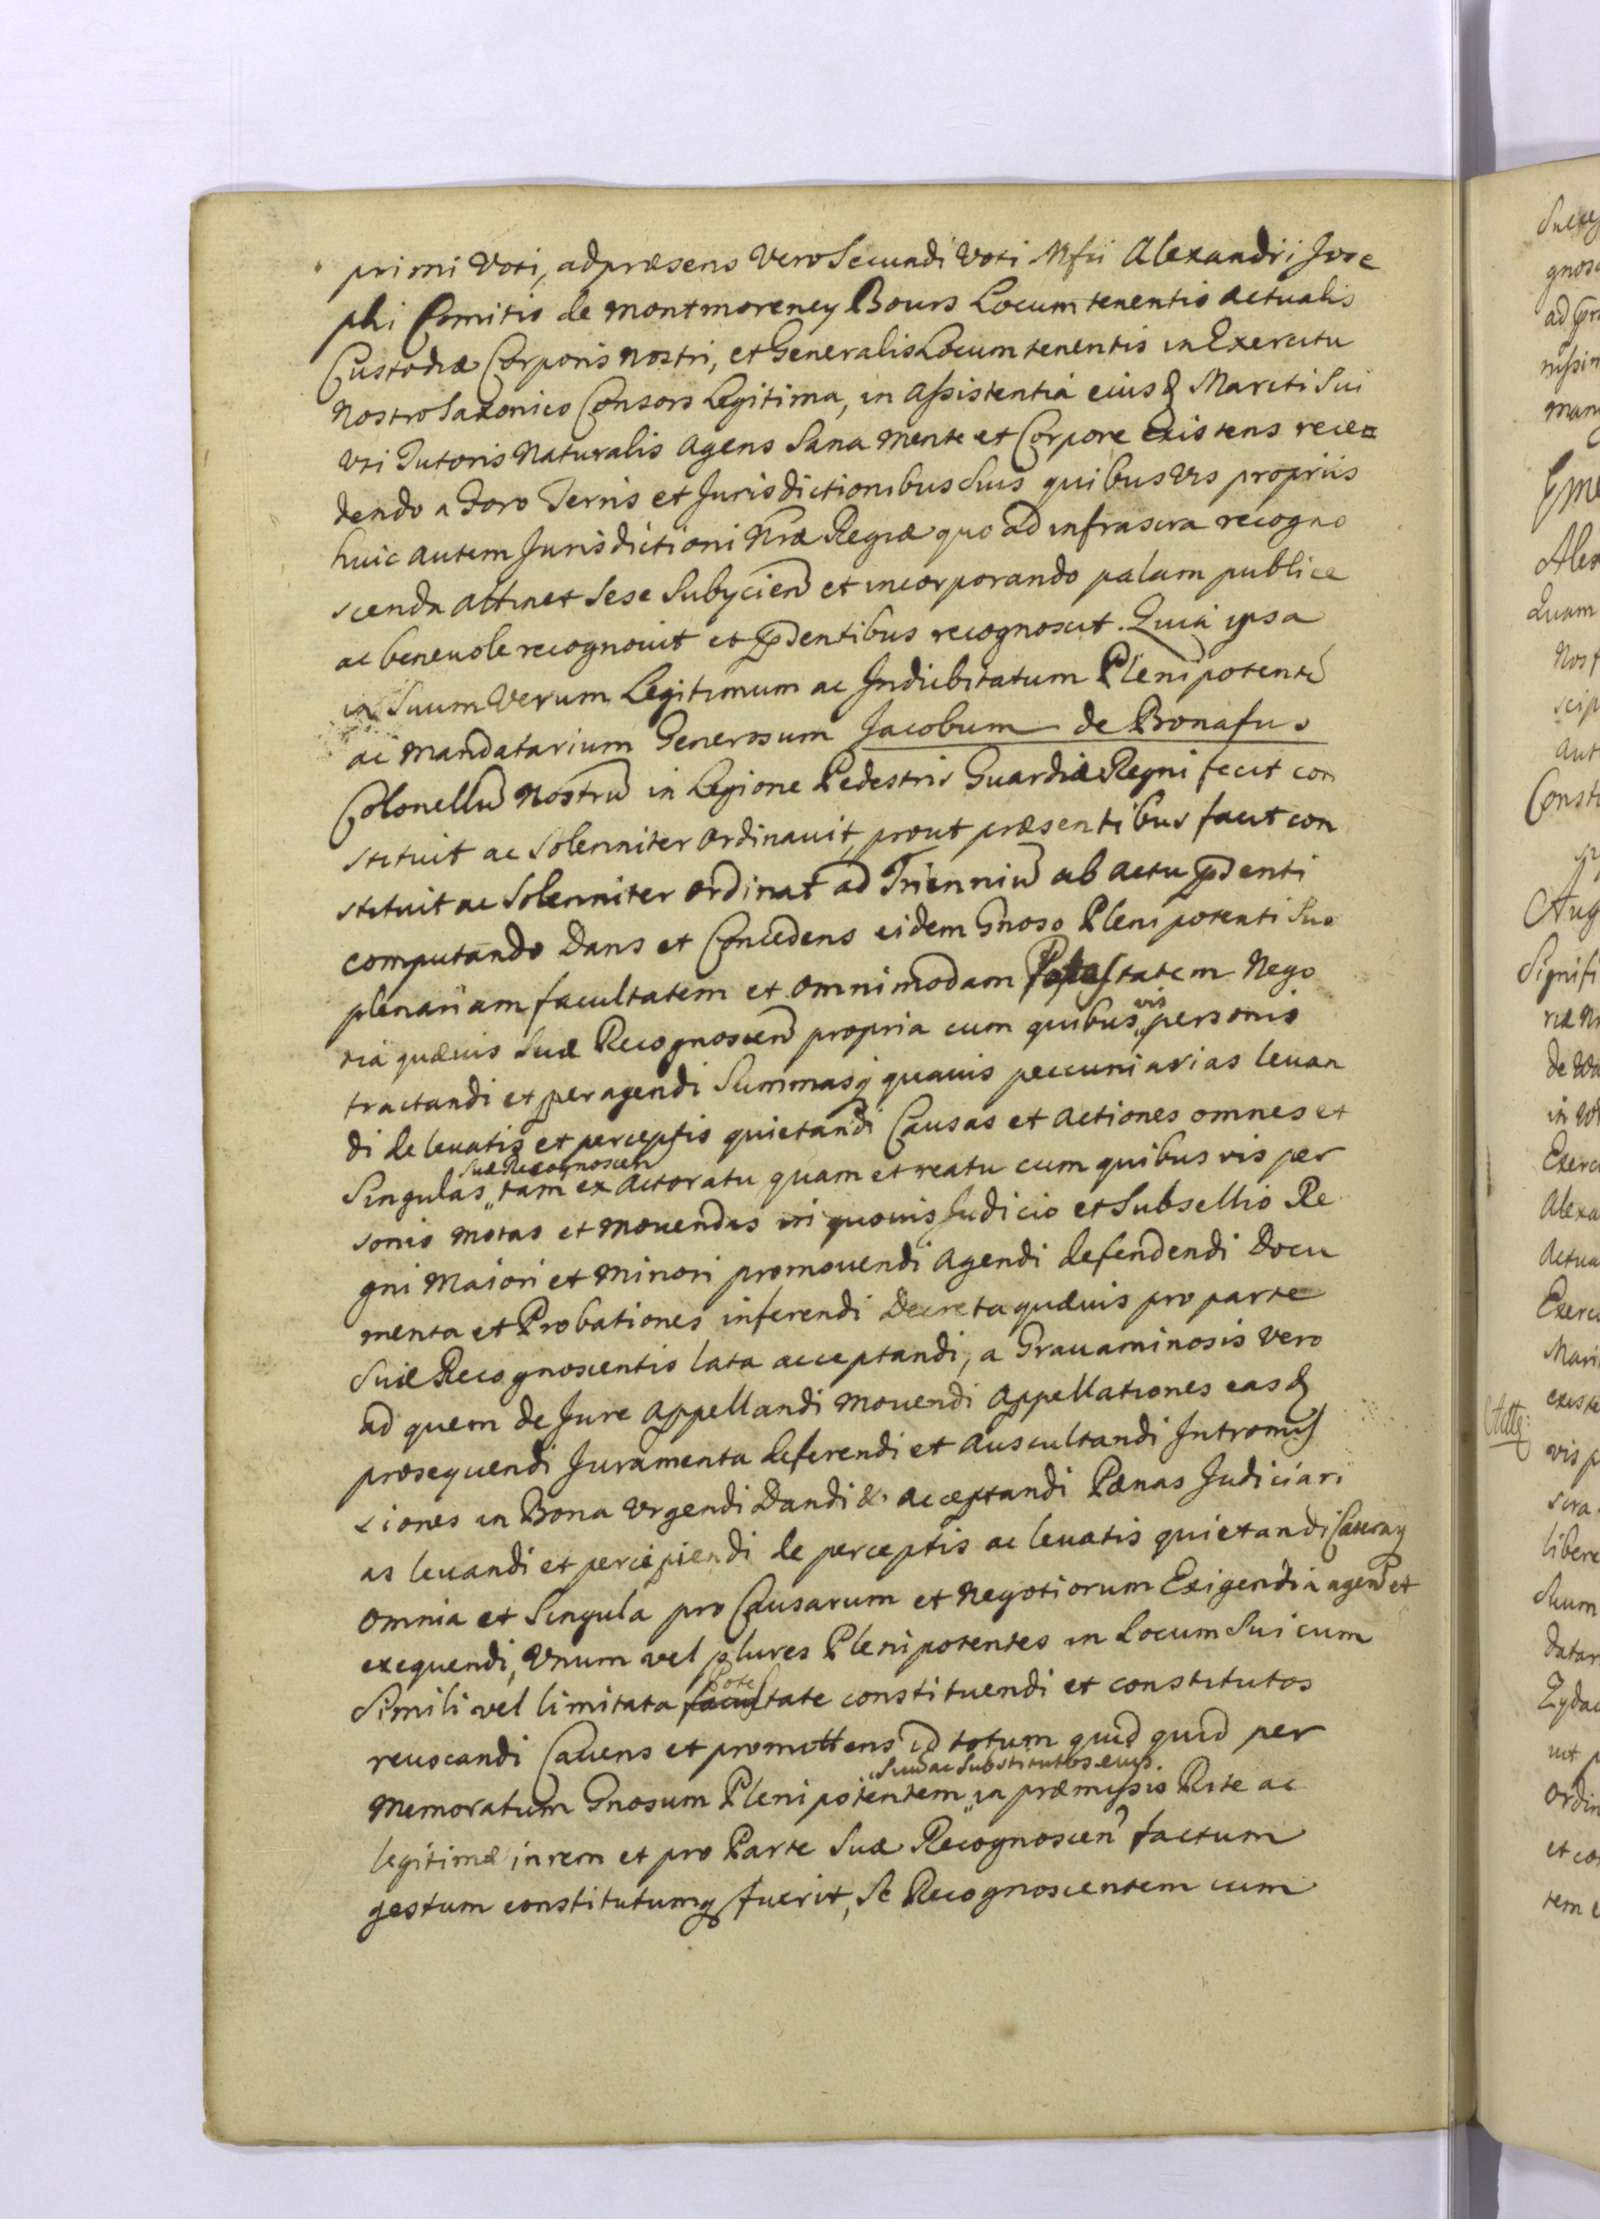 primi Voti, ad præsens Vero Secundi Voti Mfci Alexandri Jose
phi Comitis de Montmorency Bours Locum tenentis actualis
Custodiæ Corporis Nostri, et Generalis Locum tenentis in Exercitu
Nostro Saxonico Consors Legitima, in Assistentia eiusd Mariti Sui
Vti Tutoris Naturalis Agens Sana mente et Corpore Existens rece=
dendo a Foro Terris et Jurisdictionibus Suis quibus Vis propriis
huic autem Jurisdictioni Nræ Regiæ quo ad infrascra recogno
scenda attinet Sese Subycien et incorporando palam publice
ac beneuole recognouit et pndentibus recognoscit. Quia ipsa
in Suum Verum Legitimum ac Indubitatum Plenipotent
ac Mandatarium Generosum Jacobum de Bonafus
Colonellu Nostru in Legione Pedestris Guardiæ Regni fecit con
stituit ac Solenniter Ordinauit, prout præsentibus facit con
stituit ac Solenniter ordinat ad Trienniu ab actu pndenti
computando Dans et Concedens eidem Gnoso Plenipotenti Suo
plenariam facultatem et omnimodam Potestatem Nego
tia quæuis Suæ Recognoscen propria cum quibus vis personis
tractandi et peragendi Summasq quauis peccuniarias leuan
di de leuatis et perceptis quietandi Causas et actiones omnes et
Singulas Suæ Recognoscen tam ex Actoratu quam et reatu cum quibus vis per
sonis motas et mouendas in quouis Judicio et Subsellio Re
gni Maiori et Minori promouendi agendi defendendi Docu
menta et Probationes inferendi Decreta quæuis pro parte
Suæ Recognoscentis lata acceptandi, a Grauaminosis Vero
ad quem de Jure Appellandi mouendi appellationes easd
prosequendi Juramenta deferendi et auscultandi Intromis
siones in Bona Vrgendi Dandi & acceptandi Pænas Judiciari
as leuandi et percipiendi de perceptis ac leuatis quietandi Cæteraq
omnia et Singula pro Causarum et Negotiorum Exigentia agend et
exequendi, Vnum vel plures Plenipotentes in Locum Sui cum
Simili vel limitata Potestate constituendi et constitutos
reuocandi Cauens et promittens id totum quid quid per
Memoratum Gnosum Plenipotentem Suu ac Substitutos eius in præmissis Rite ac
legitime in rem et pro Parte Suæ Recognoscen factum
gestum constitutumq fuerit, Se Recognoscentem cum